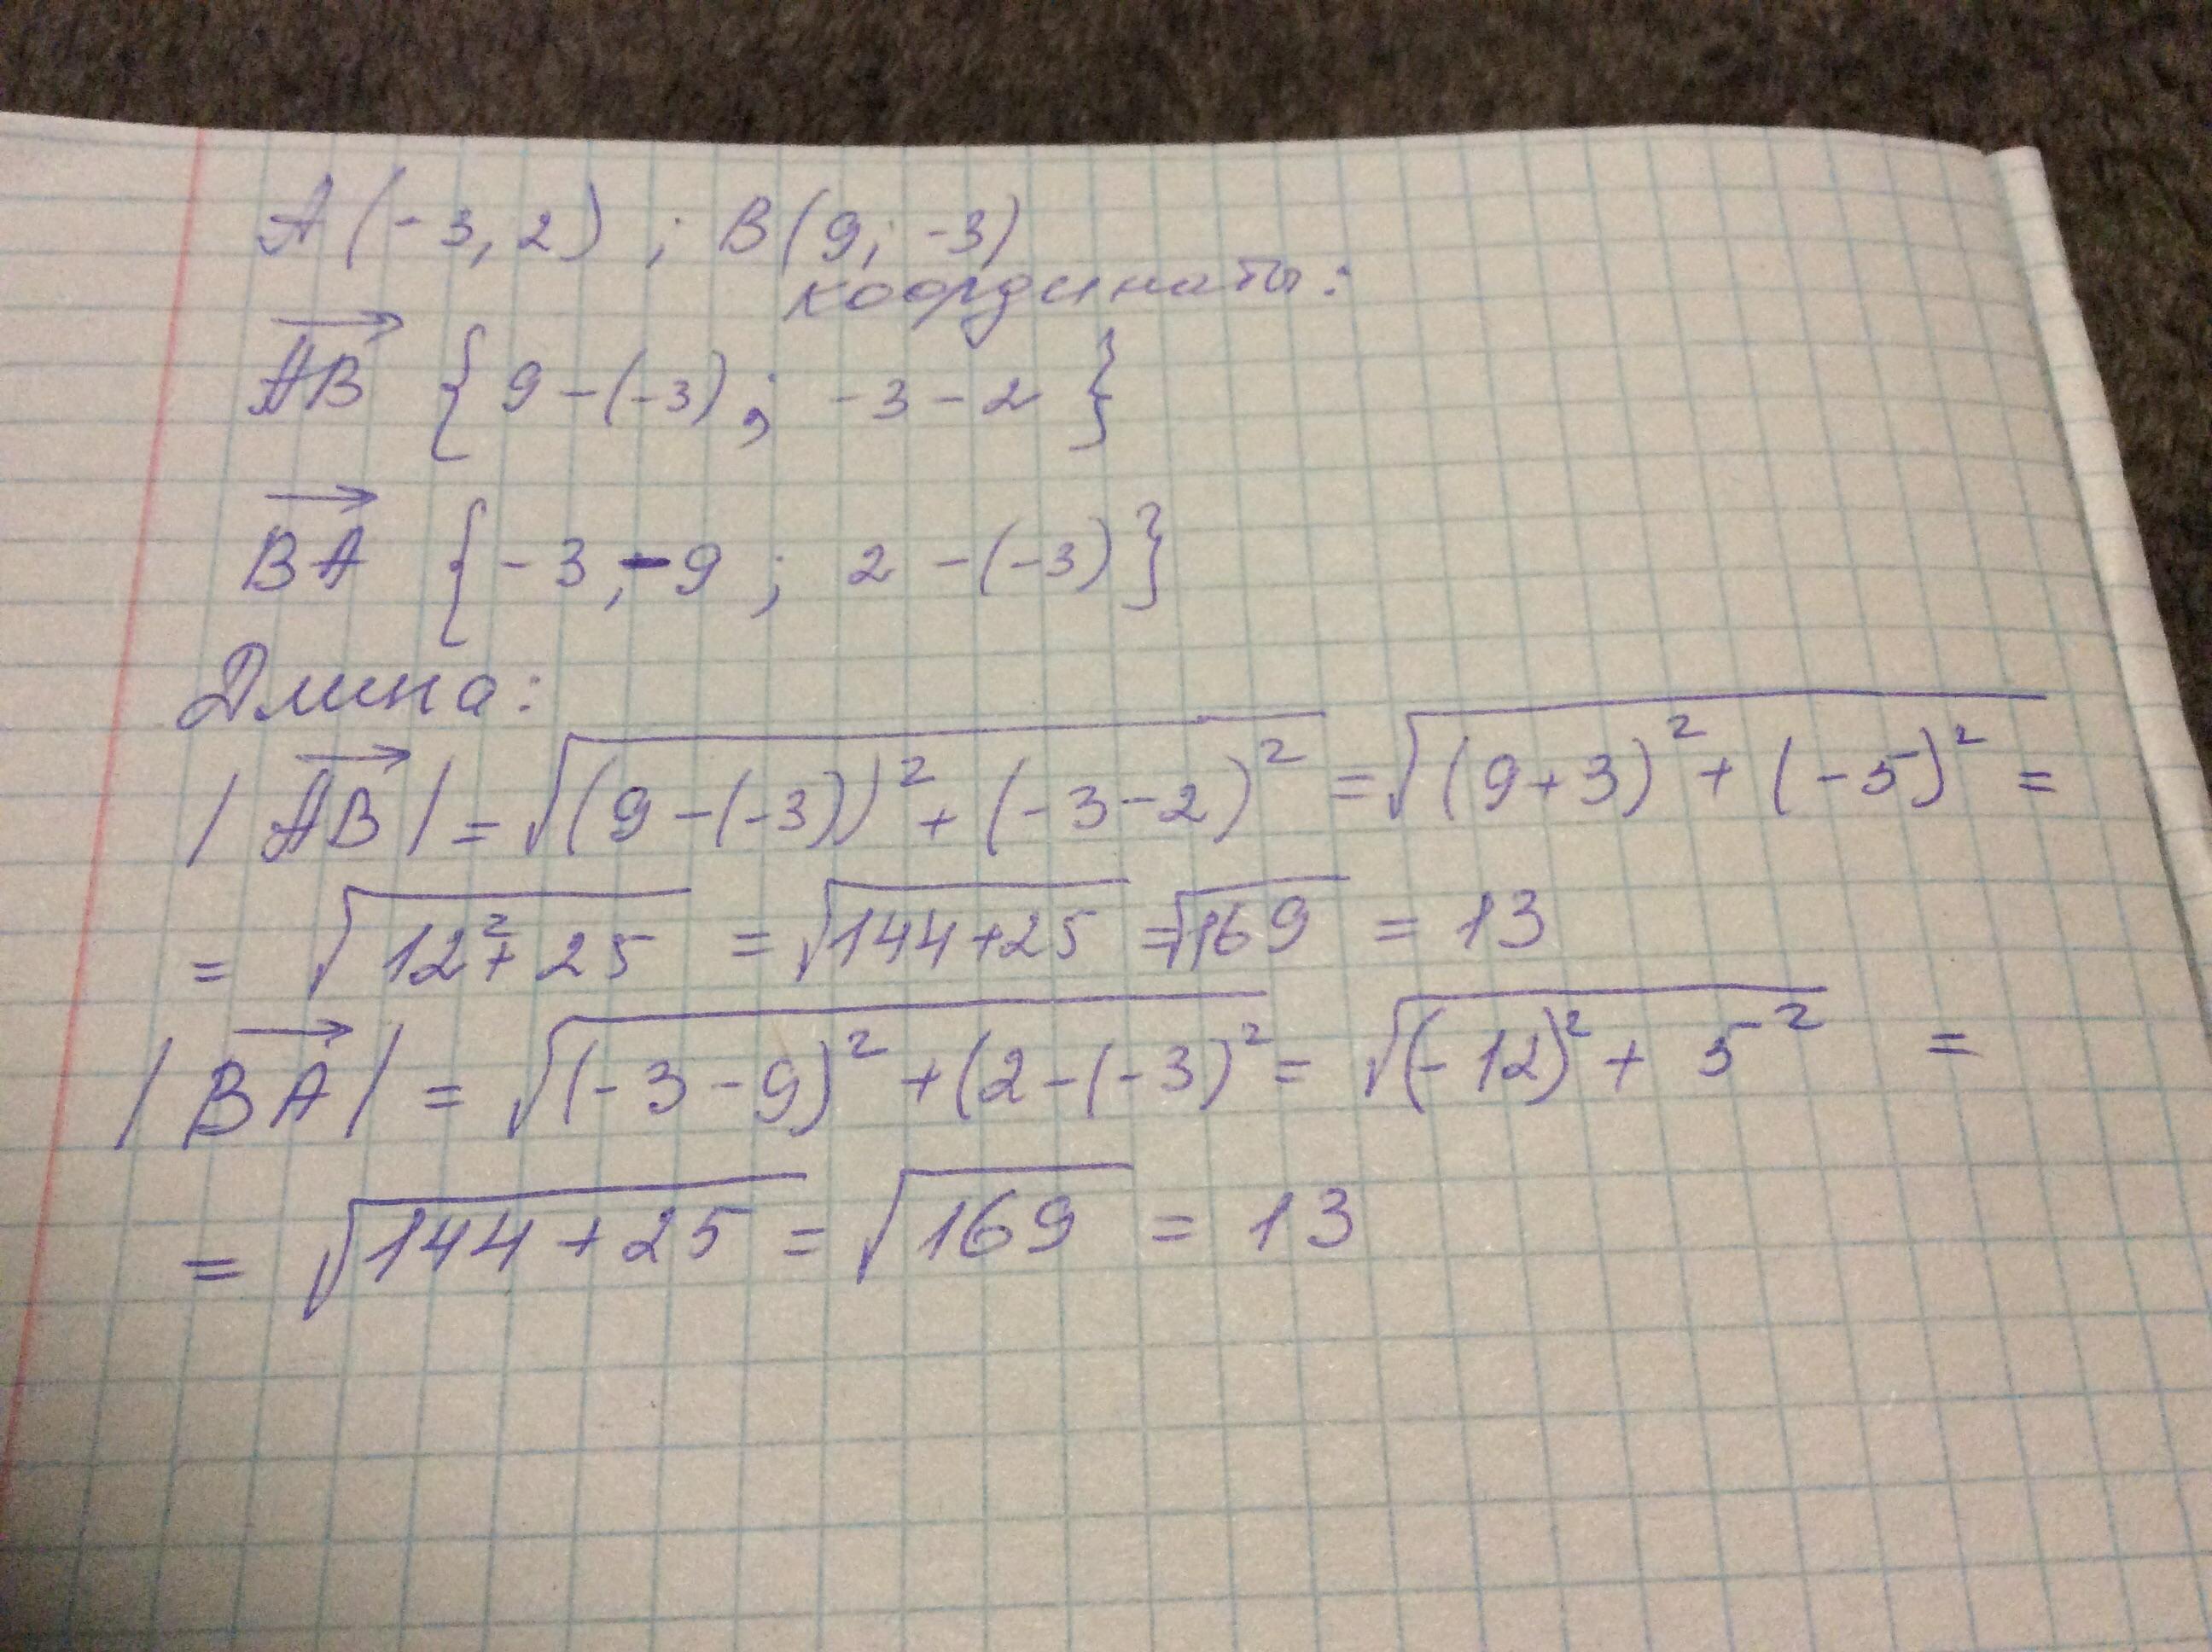 A(-3,2) ; B(9; -3)
координаты:
AB {9-(-3); -3-2}
BA {-3,-9; 2-(-3)}
Длина:
|AB| = √(9-(-3))²+(-3-2)² = √(9+3)²+(-5)² =
= √12²+25 = √144+25 = √169 = 13
|BA| = √(-3-9)²+(2-(-3)² = √(-12)²+5² =
= √144+25 = √169 = 13